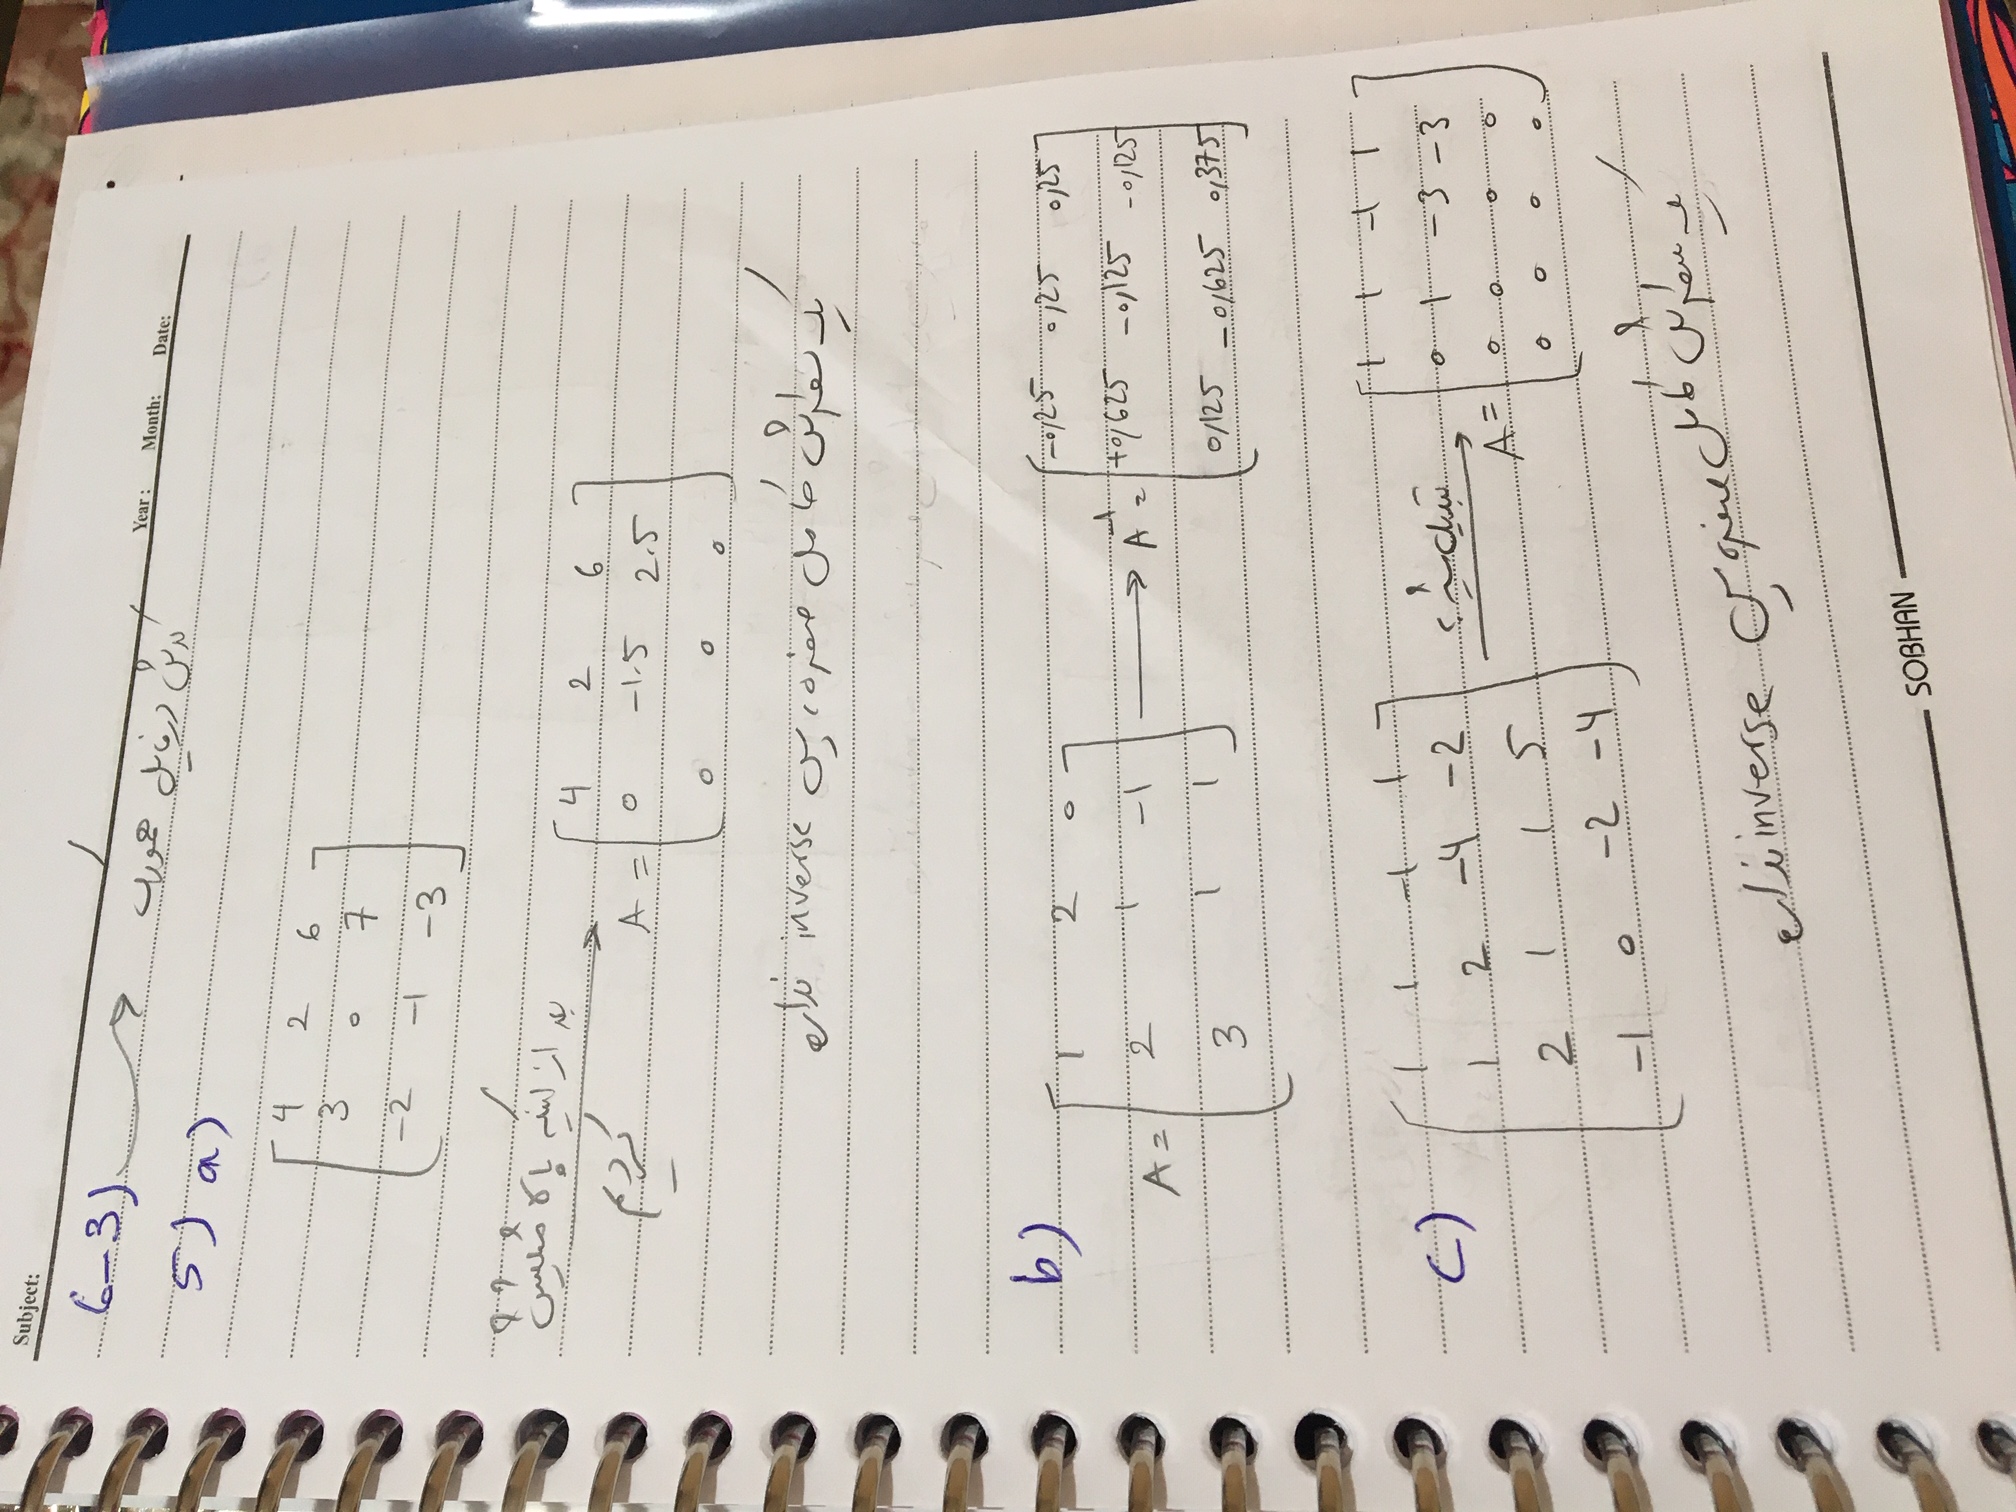 Subject:
Year: Month: Date:
6-3) → کدش در فایل همورک
5) a)
4 2 6
3 0 7
-2 -1 -3
بعد از اینکه بالا مثلثیش
کردیم
A = 4 2 6
0 -1.5 2.5
0 0 0
یک سطرش کامل صفره، پس inverse نداره
b)
A = 1 2 0
2 1 -1
3 1 1
→ A⁻¹ = -0,25 0,25 0,25
+0,625 -0,125 -0,125
0,125 -0,625 0,375
c)
1 1 -1 1
1 2 -4 -2
2 1 1 5
-1 0 -2 -4
تبدیل میشه به
A = 1 1 -1 1
0 1 -3 -3
0 0 0 0
0 0 0 0
یک سطرش کامل صفره پس inverse نداره
SOBHAN